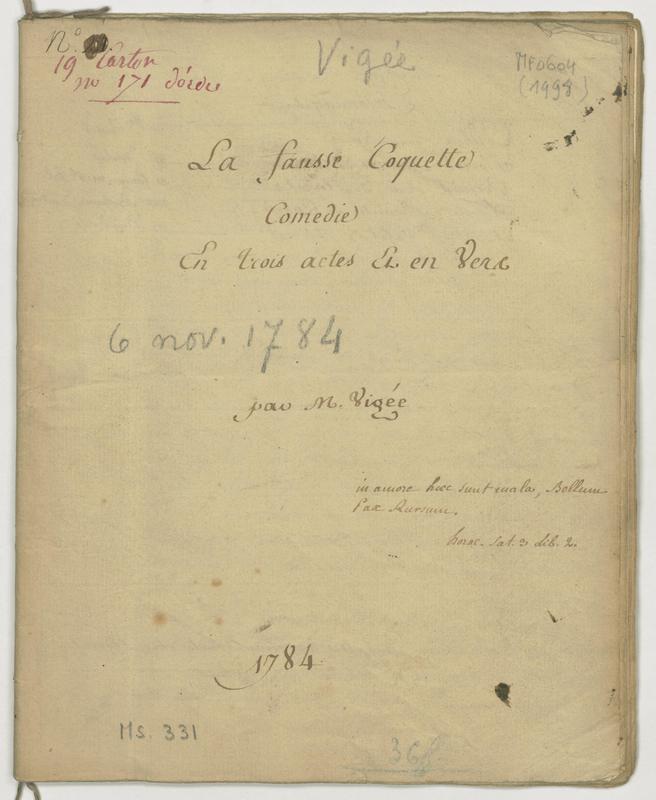 N°
19 Carton
no 171 d'ordre
Vigée
MF0604
(1998)
La fausse Coquette
Comedie
En trois actes Et en Vers
6 nov. 1784
par M. Vigée
in amore hœc sunt mala, Bellum
Pax Rursum.
horac. sat. 3 lib. 2.
1784
Ms. 331
36f.